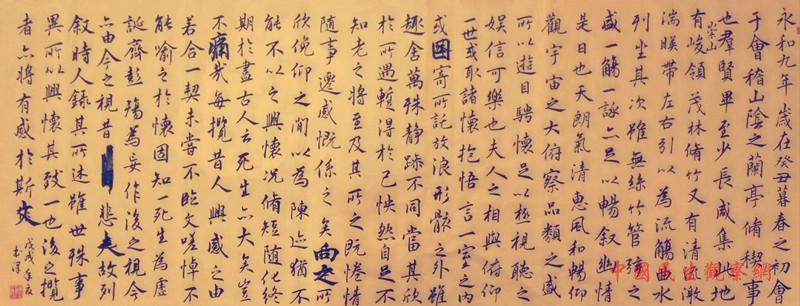 永和九年歲在癸丑暮春之初會
于會稽山陰之蘭亭脩稧事
也羣賢畢至少長咸集此地
有崇山峻領茂林脩竹又有清流激
湍暎帶左右引以為流觴曲水
列坐其次雖無絲竹管弦之
盛一觴一詠亦足以暢叙幽情
是日也天朗氣清惠風和暢仰
觀宇宙之大俯察品類之盛
所以遊目騁懷足以極視聽之
娛信可樂也夫人之相與俯仰
一世或取諸懷抱悟言一室之內
或因寄所託放浪形骸之外雖
趣舍萬殊静躁不同當其欣
於所遇暫得於己怏然自足不
知老之將至及其所之既惓情
隨事遷感慨係之矣向之所
欣俛仰之間以為陳迹猶不
能不以之興懷況脩短隨化終
期於盡古人云死生亦大矣豈
不痛哉每攬昔人興感之由
若合一契未嘗不臨文嗟悼不
能喻之於懷固知一死生為虛
誕齊彭殤為妄作後之視今
亦由今之視昔悲夫故列
叙時人錄其所述雖世殊事
異所以興懷其致一也後之攬
者亦將有感於斯文
戊戌年
中國 觀察網